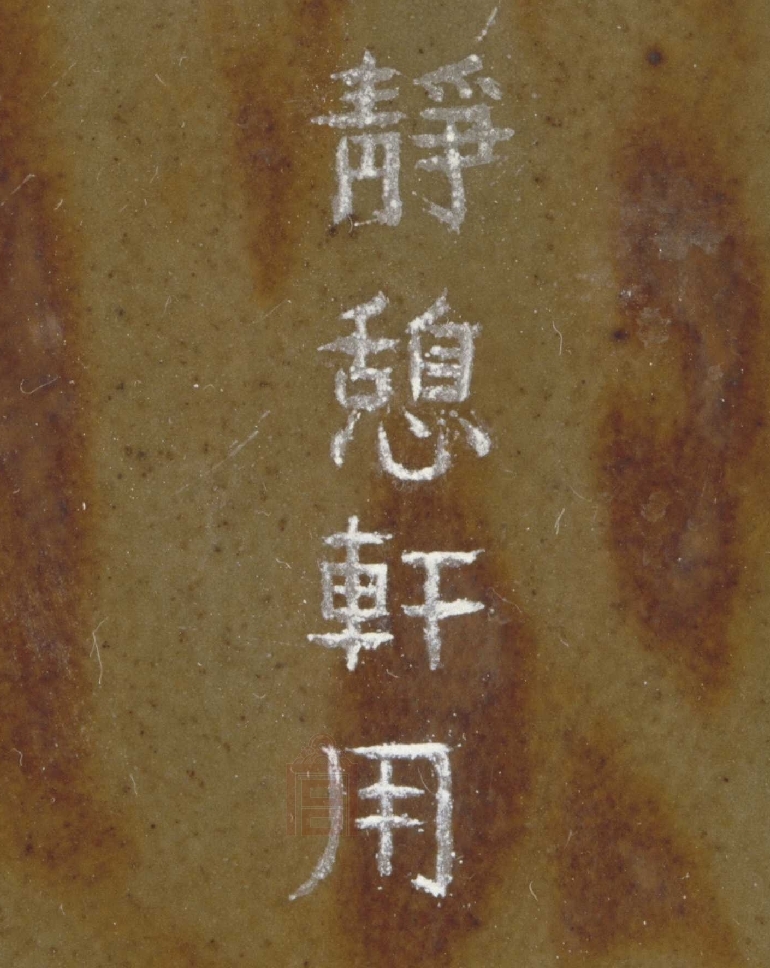 靜憩軒用